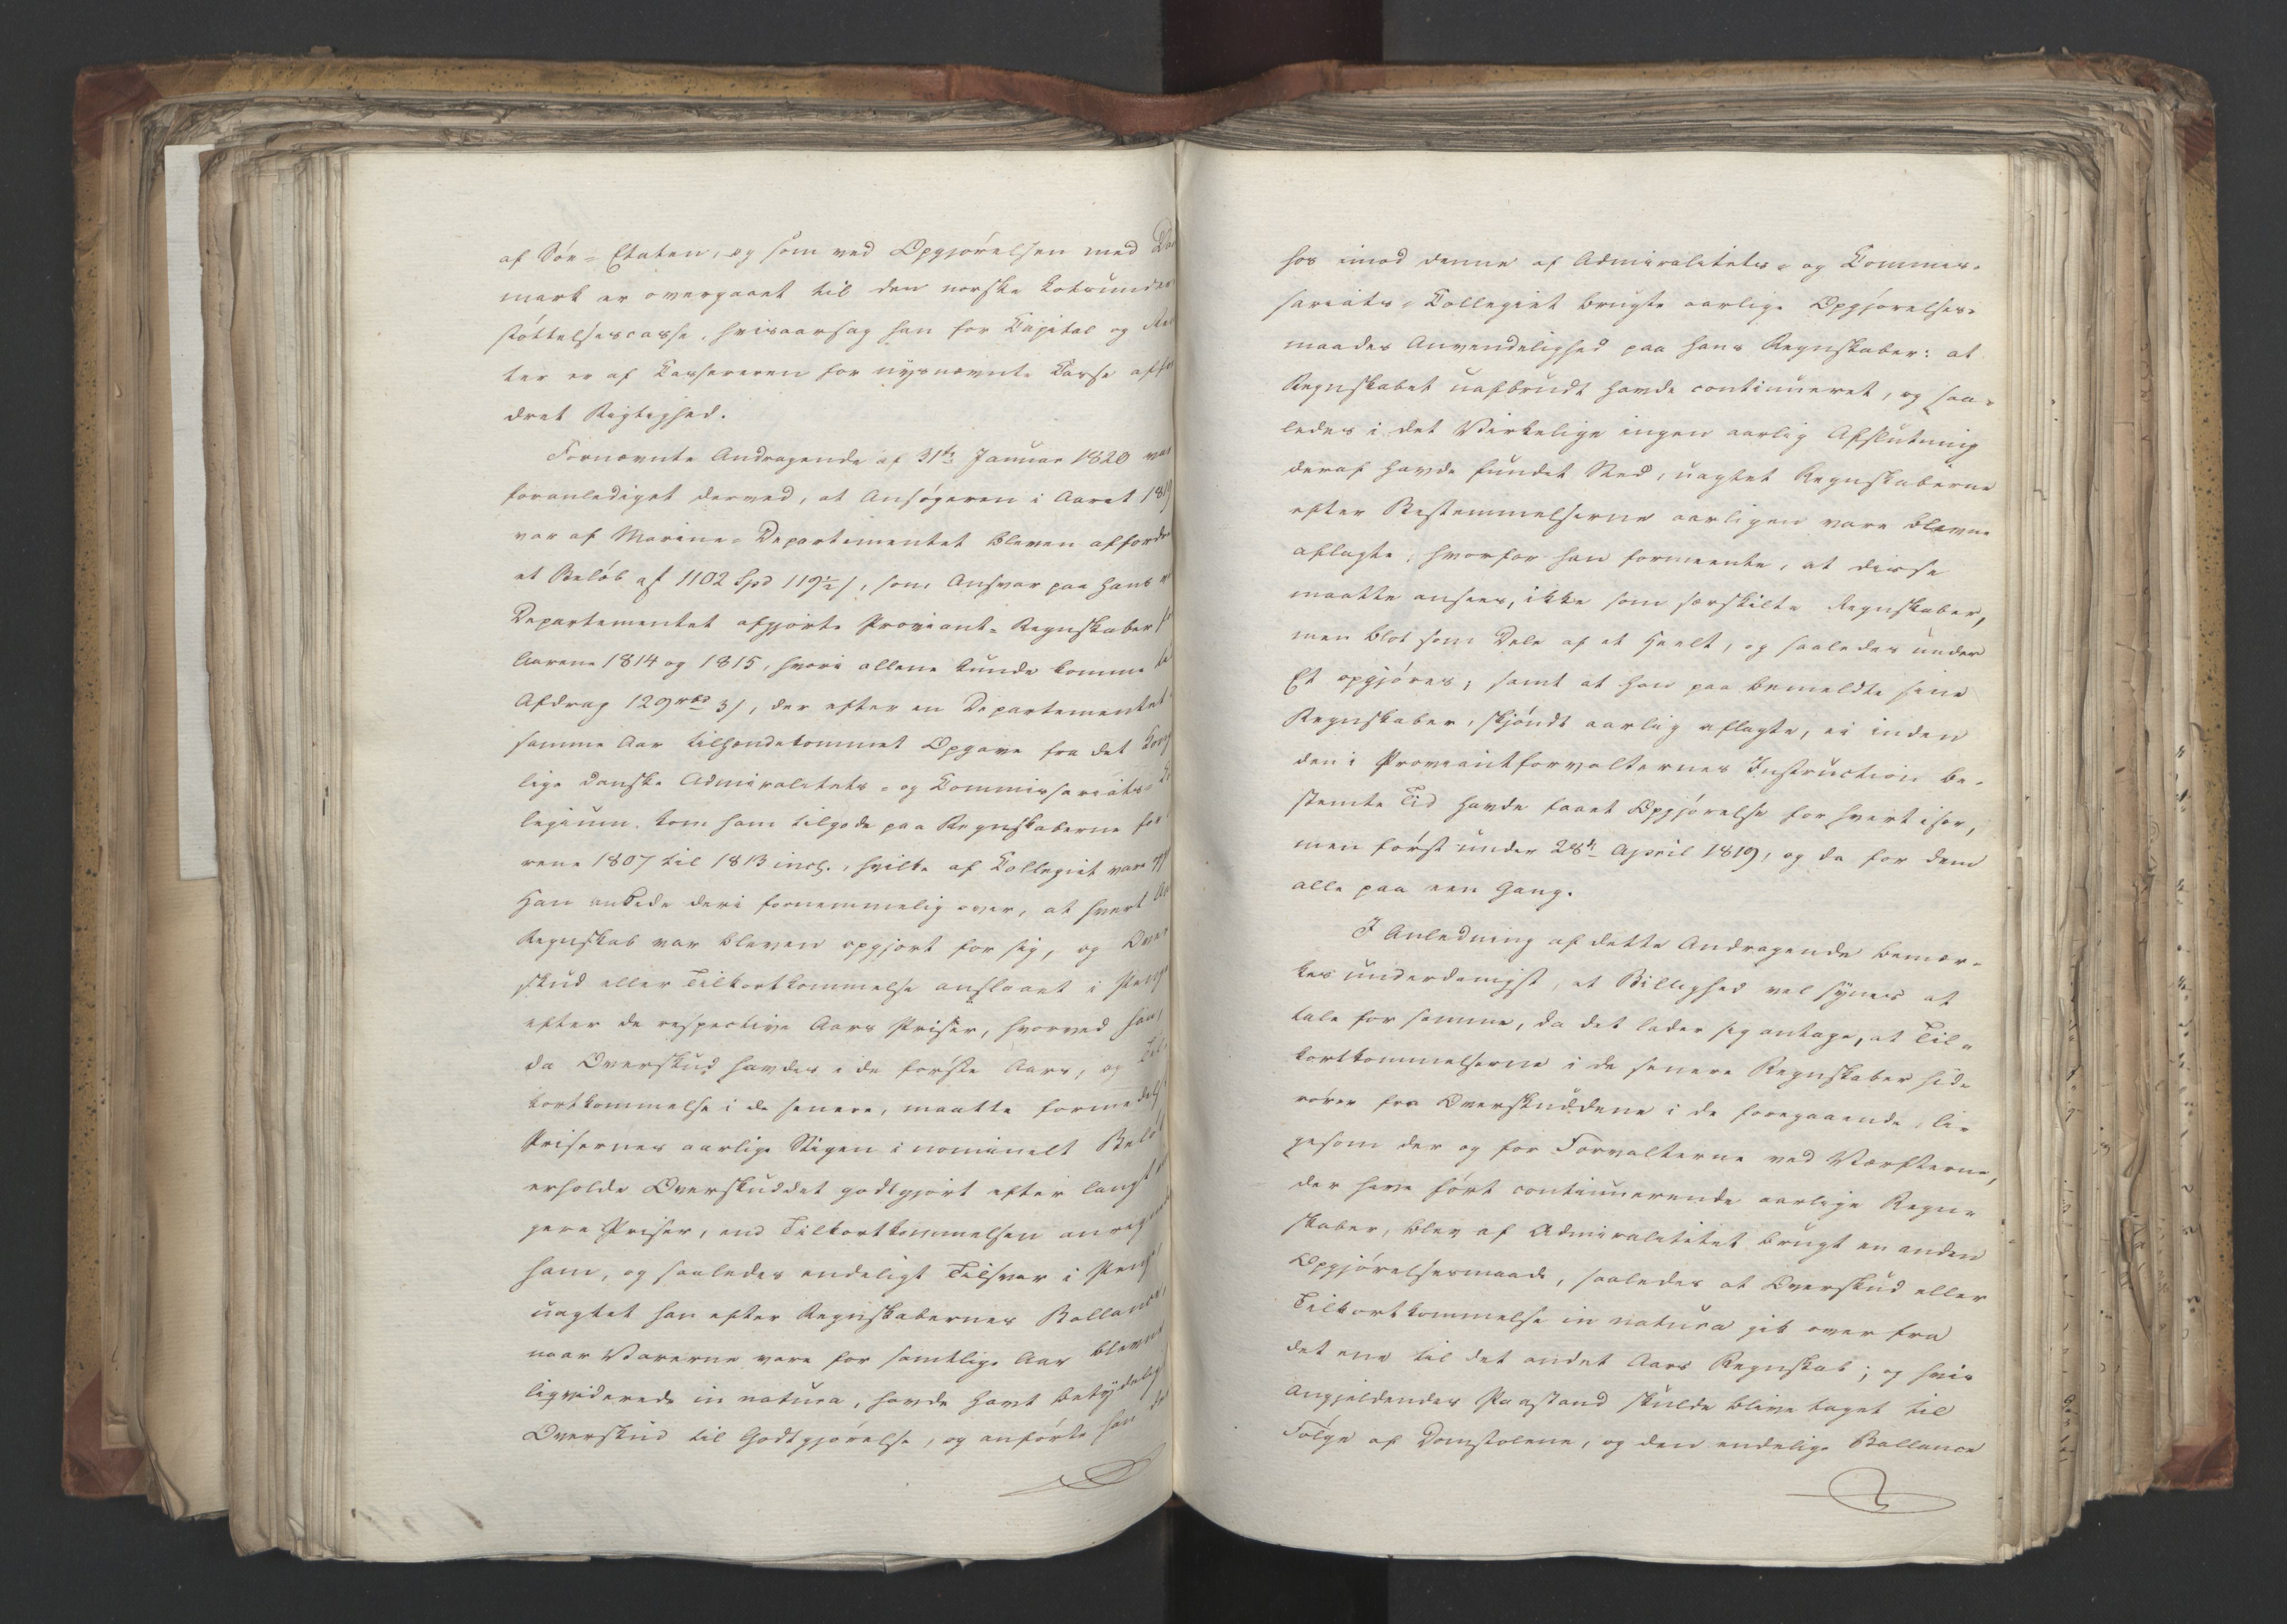 af Søe-Etaten, og som ved Opgjørelsen med Dan
mark er overgaaet til den norske
støttelsescasse, hvisaarsag han for Capital og Ren
ter er af Cassereren for nysnævnte Casse affor
dret Rigtighed.
Fornævnte Andragende af 31te Januar 1820 var
foranlediget derved, at Ansøgeren i Aaret 1819
var af Marine-Departementet bleven affordr
et Beløb af 1102 Spd 119½ s, som Ansvar paa hans v
Departementet afgjorte Proviant-Regnskaber f
Aarene 1814 og 1815, hvori allene kunde komme til
Afdrag 129 rbd 3 s, der efter en Departementet
samme Aar tilhændekommet Opgave fra det Kong
lige danske Admiralitets- og Commissariats-Co
legium, kom ham tilgode paa Regnskaberne for
rene 1807 til 1813 incl., hvilke af Collegiet vare opg
Han ankede deri fornemmelig over, at hvert Aa
Regnskab var bleven opgjort for sig, og Over
skud eller Tilkortkommelse anslaaet i Penge
efter de respective Aars Priser, hvorved han,
da Overskud havdes i de første Aars, og Til
kortkommelse i de senere, maatte formedelst
Prisernes aarlige Stigen i nominelt Beløb
erholde Overskuddet godtgjort efter langt
gere Priser, end Tilkortkommelsen anregnedes
ham, og saaledes endeligt Tilsvar i Penge,
uagtet han efter Regnskabernes Ballance,
naar Varerne vare for samtlige Aar blevne
liqviderede in natura, havde havt betydeligt
Overskud til Godtgjørelse, og anførte han der
hos imod denne af Admiralitets- og Commis-
sariats-Collegiet brugte aarlige Opgjørelses-
maades Anvendelighed paa hans Regnskaber: at
Regnskabet uafbrudt havde continueret, og saa-
ledes i det Virkelige ingen aarlig Afslutning
deraf havde fundet Sted, uagtet Regnskaberne
efter Bestemmelserne aarligen vare blevne
aflagte, hvorfor han formeente, at disse
maatte ansees, ikke som særskilte Regnskaber,
men blot som Dele af et Heelt, og saaledes under
Et opgjøres; samt at han paa bemeldte sine
Regnskaber, skjøndt aarlig aflagte, ei inden
den i Proviantforvalternes Instruction be-
stemte Tid havde faaet Opgjørelse for hvert især,
men først under 28de April 1819, og da for dem
alle paa een Gang.
I Anledning af dette Andragende bemær-
kes underdanigst, at Billighed vel synes at
tale for samme, da det lader sig antage, at Til-
kortkommelserne i de senere Regnskaber hide
rører fra Overskuddene i de foregaaende, li-
gesom der og for Forvalterne ved Værfterne,
der have ført continuerende aarlige Regn-
skaber, blev af Admiralitetet brugt en anden
Opgjørelsesmaade, saaledes at Overskud eller
Tilkortkommelse in natura gik over fra
det ene til det andet Aars Regnskab; og hvis
Angjeldendes Paastand skulde blive taget til
Følge af Domstolene, og den endelige Ballance